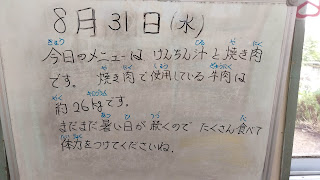 8月31日(水)
今日のメニューは けんちん汁と焼き肉
です。 焼き肉で使用している牛肉は
約26kgです。
まだまだ暑い日が続くので たくさん食べて
体力をつけてくださいね。